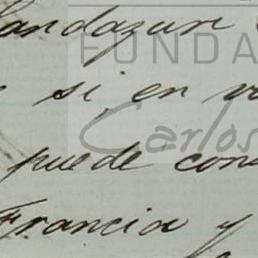 Landazuri
FUNDA
si, en
Carlos
puede con
Francia y